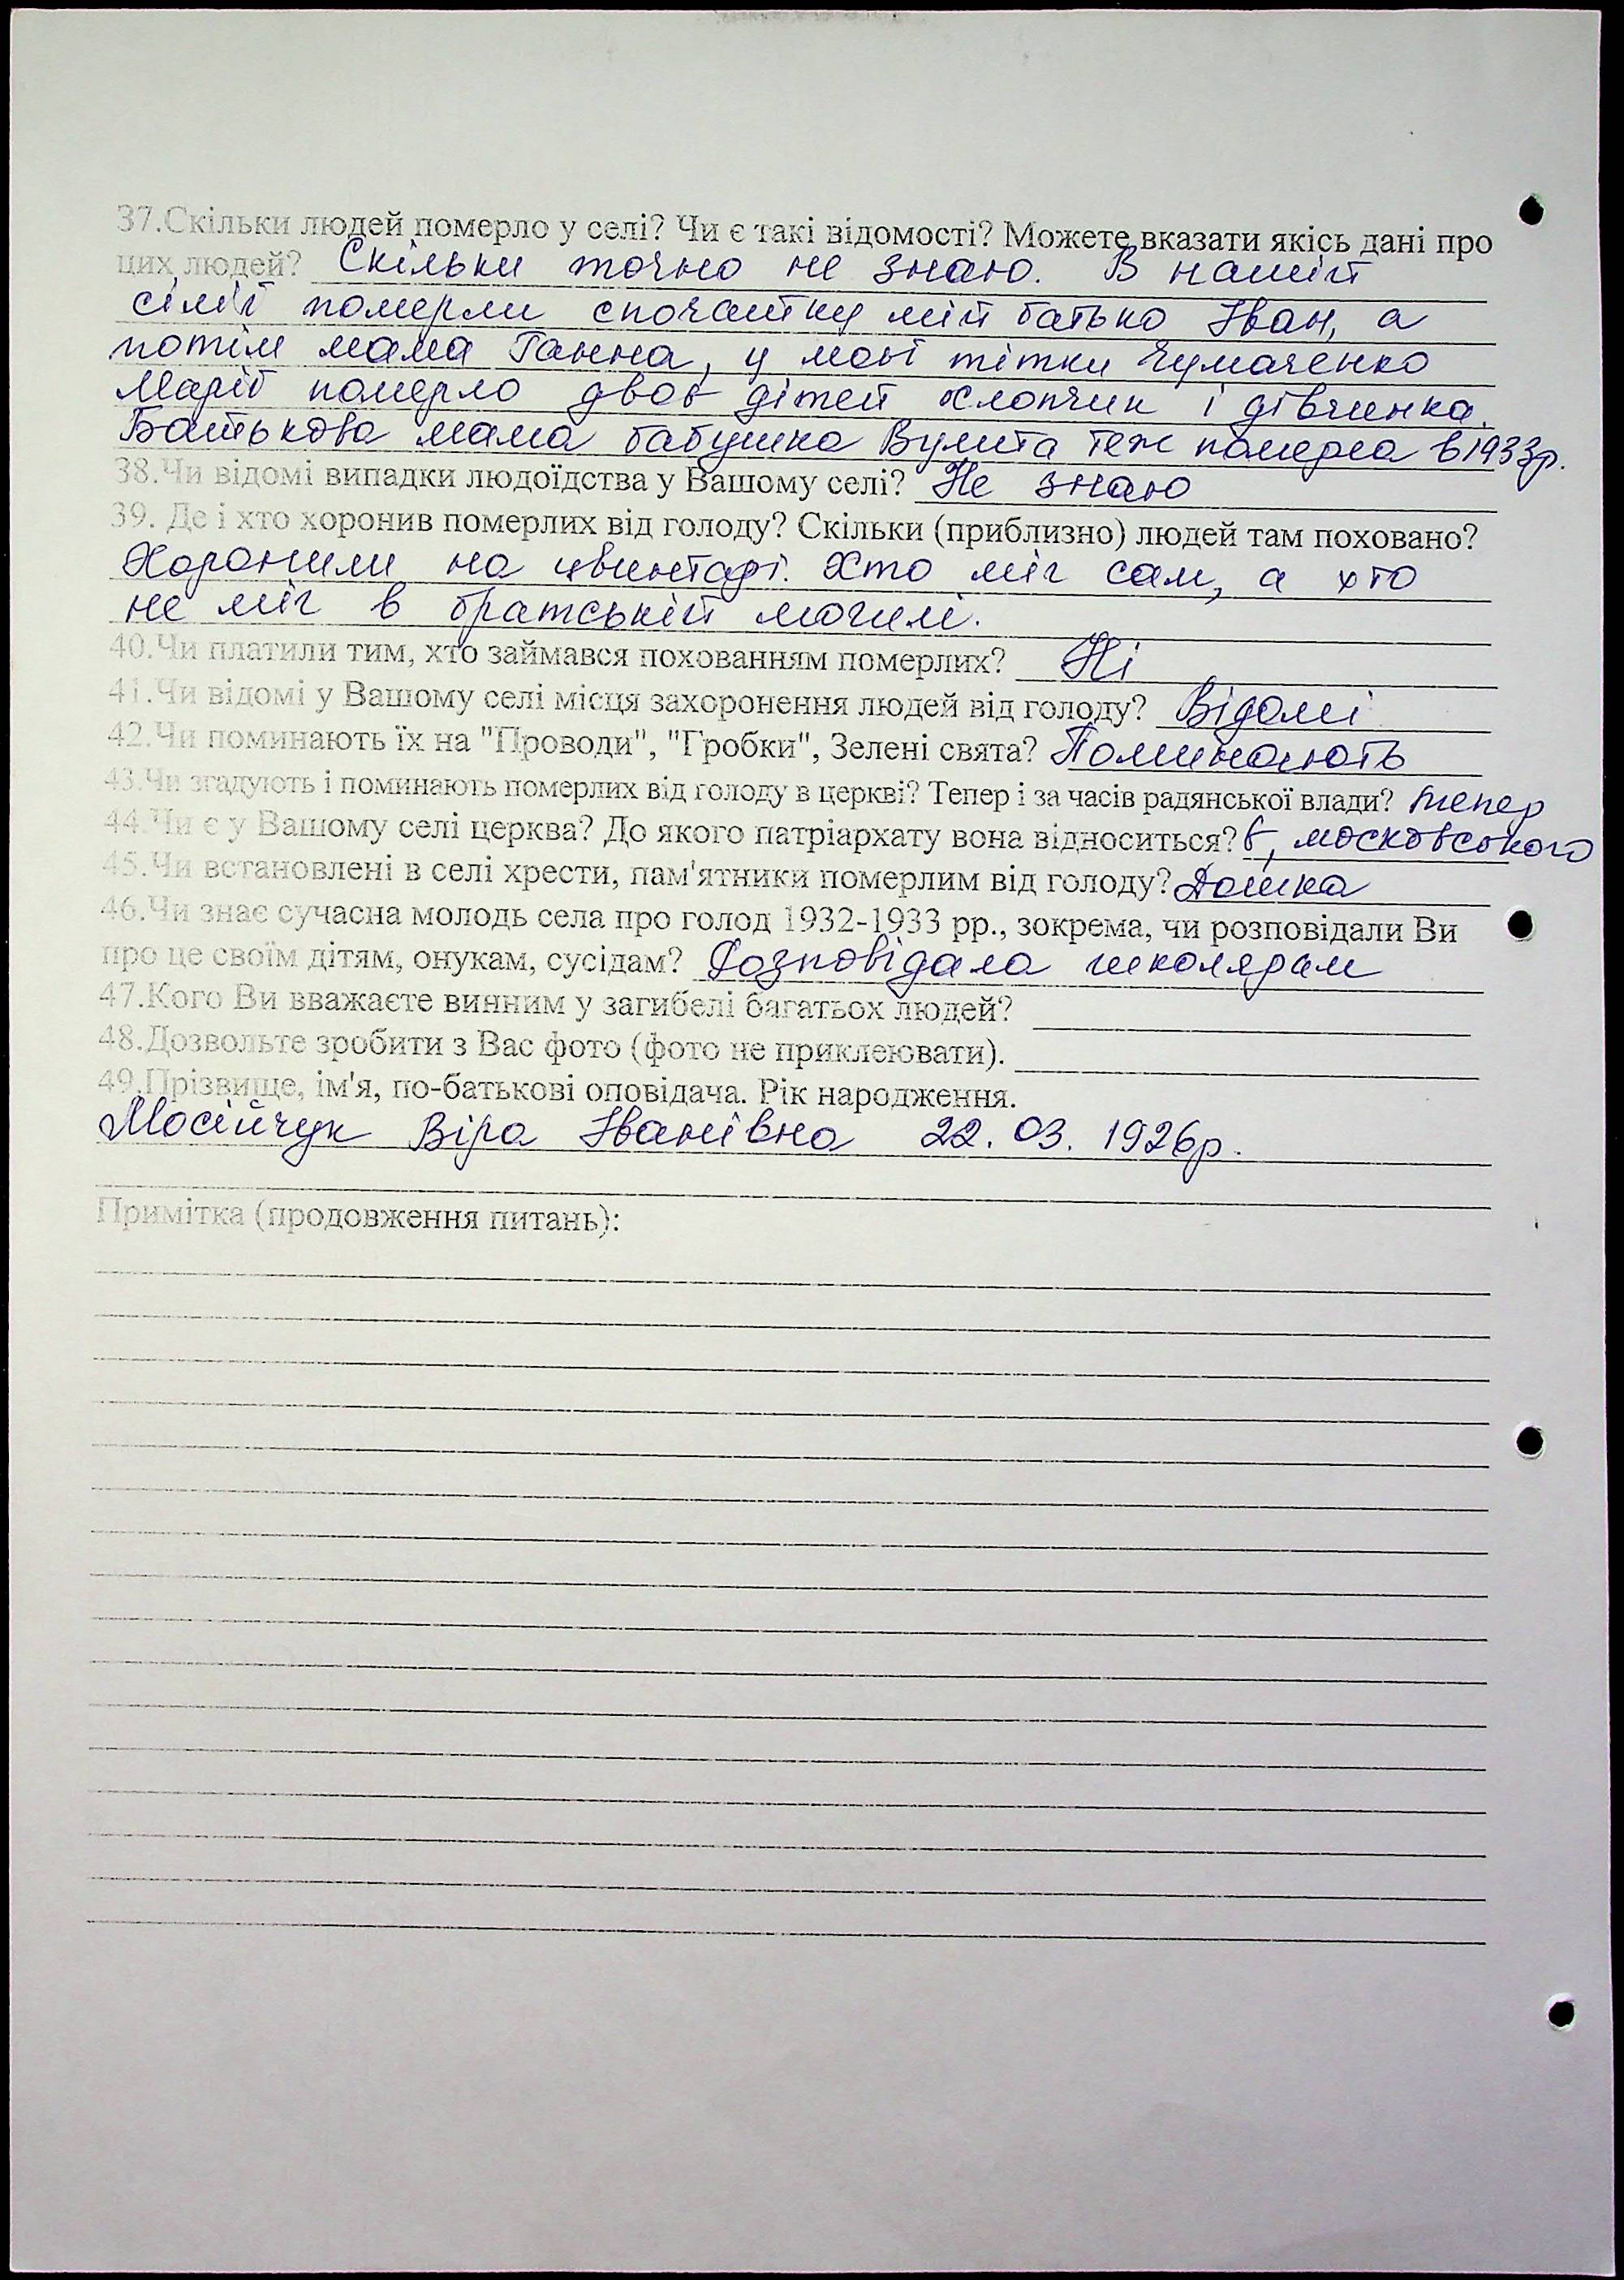 37.Скільки людей померло у селі? Чи є такі відомості? Можете вказати якісь дані про
цих людей? Скільки точно не знаю. В нашій
сімї померли спочатку мій батько Іван, а
потім мама Ганна, у моєї тітки Чумаченко
Марії померло двоє дітей хлопчик і дівчинка.
Батькова мама бабушка Вулита теж померла в 1933р.
38.Чи відомі випадки людоїдства у Вашому селі? Не знаю
39. Де і хто хоронив померлих від голоду? Скільки (приблизно) людей там поховано?
Хоронили на цвинтарі. Хто міг сам, а хто
не міг в братській могилі.
40.Чи платили тим, хто займався похованням померлих? Ні
41.Чи відомі у Вашому селі місця захоронення людей від голоду? Відомі
42.Чи поминають їх на "Проводи", "Гробки", Зелені свята? Поминають
43.Чи згадують і поминають померлих від голоду в церкві? Тепер і за часів радянської влади? тепер
44.Чи є у Вашому селі церква? До якого патріархату вона відноситься? є, московського
45.Чи встановлені в селі хрести, пам'ятники померлим від голоду? Дошка
46.Чи знає сучасна молодь села про голод 1932-1933 рр., зокрема, чи розповідали Ви
про це своїм дітям, онукам, сусідам? Розповідала школярам
47.Кого Ви вважаєте винним у загибелі багатьох людей?
48.Дозвольте зробити з Вас фото (фото не приклеювати).
49.Прізвище, ім'я, по-батькові оповідача. Рік народження.
Мосійчук Віра Іванівна 22. 03. 1926р.
Примітка (продовження питань):